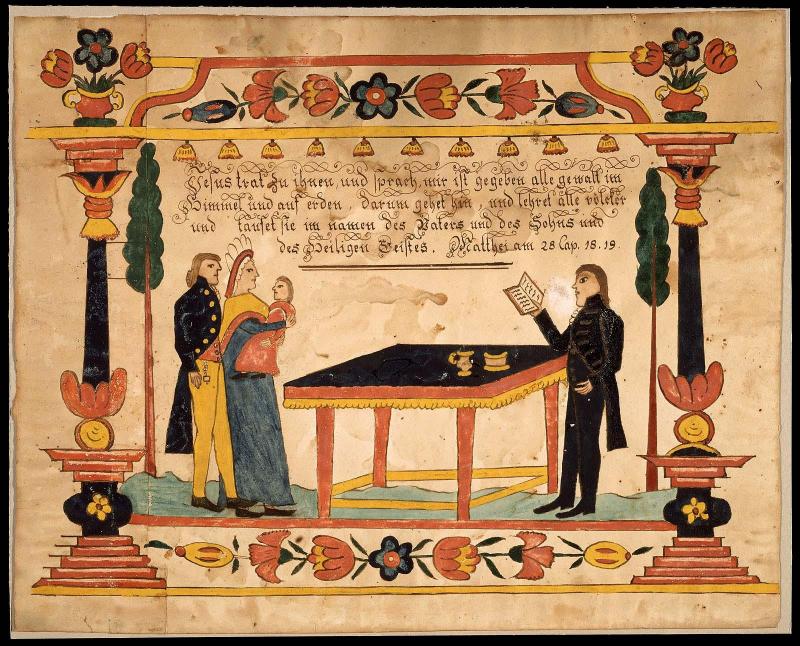 Jesus trat zu ihnen, und sprach, mir ist gegeben alle gewalt im
Himmel und auf erden, Darum gehet hin, und lehret alle völcker
und taufet sie im namen des Vaters und des Sohns und
des Heiligen Geistes. Matthei am 28 Cap. 18. 19.